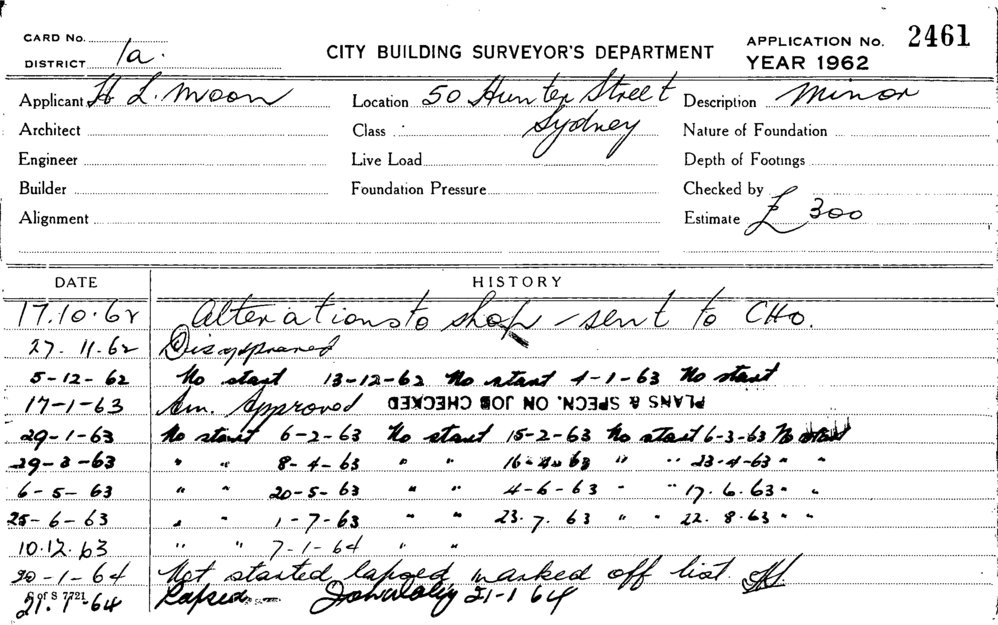 CARD No.
DISTRICT 1a.
CITY BUILDING SURVEYOR'S DEPARTMENT
APPLICATION No. 2461
YEAR 1962
Applicant H L. Moon Location 50 Hunter Street Description Minor
Architect Class Sydney Nature of Foundation
Engineer Live Load Depth of Footings
Builder Foundation Pressure Checked by
Alignment Estimate £ 300
DATE HISTORY
17.10.62 Alterations to shop - sent to CHO.
27.11.62 Disapproved
5-12-62 No start 13-12-62 No start 4-1-63 No start
17-1-63 Am. Approved PLANS & SPECN. ON JOB CHECKED
29-1-63 No start 6-2-63 No start 15-2-63 No start 6-3-63 No start
29-3-63 " " 8-4-63 " " 16-4-63 " " 23-4-63 " "
6-5-63 " " 20-5-63 " " 4-6-63 " " 17.6.63 " "
25-6-63 " " 1-7-63 " " 23.7.63 " " 22.8.63 " "
10.12.63 " " 7-1-64 " "
20-1-64 Not started lapsed marked off list
S of S 7721
21.1-64 Lapsed - 21-1 64